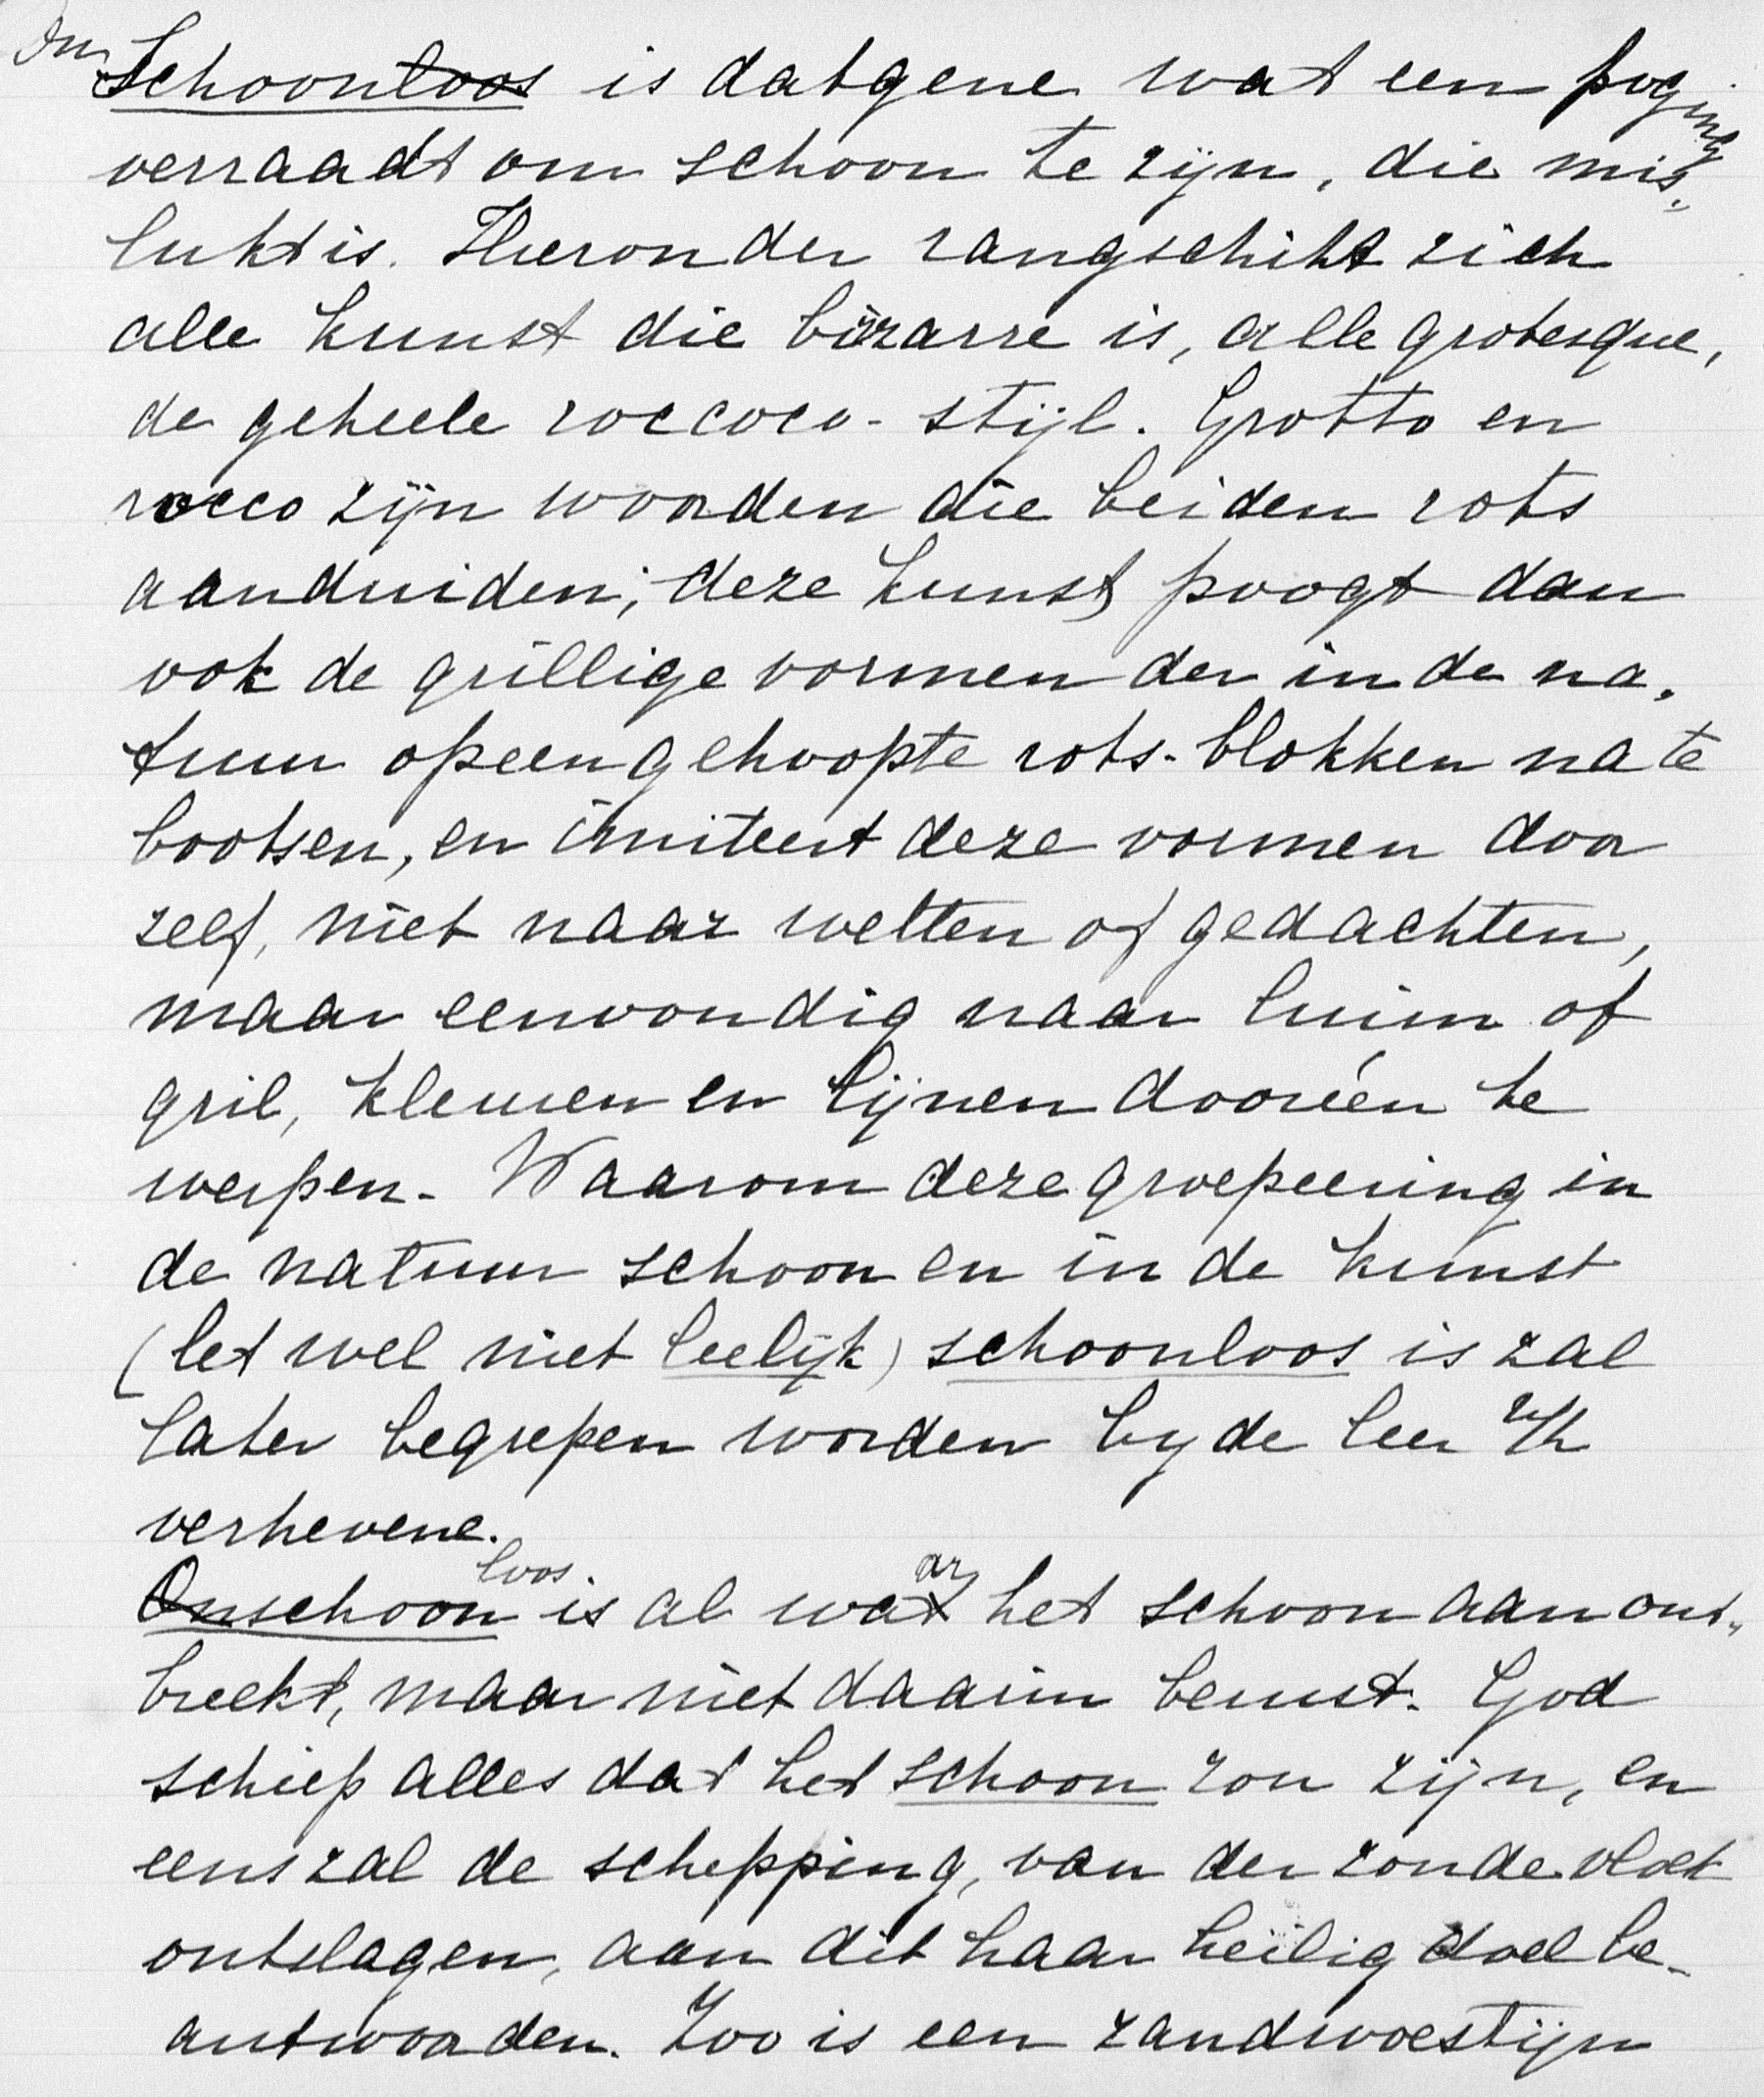 Onschoonloos is datgene wat een poging
verraadt om schoon te zijn, die mis-
lukt is. Hieronder rangschikt zich
alle kunst die bizarre is, alle grotesque,
de geheele roccoco-stijl. Grotto en
rocco zijn woorden die beiden rots
aanduiden; deze kunst poogt dan
ook de grillige vormen der in de na-
tuur opeengehoopte rots-blokken na te
bootsen, en imiteert deze vormen door
zelf, niet naar wetten of gedachten,
maar eenvoudig naar luim of
gril, kleuren en lijnen dooréén te
werpen. Waarom deze groepeering in
de natuur schoon en in de kunst
(let wel niet leelijk) schoonloos is zal
later begrepen worden by de leer v/h
verhevene.
Onschoonloos is al waar het schoon aan ont-
breekt, maar niet daarin berust. God
schiep alles dat het schoon zou zijn, en
eens zal de schepping, van der zonde vloek
ontslagen, aan dit haar heilig doel be-
antwoorden. Zoo is een zandwoestijn